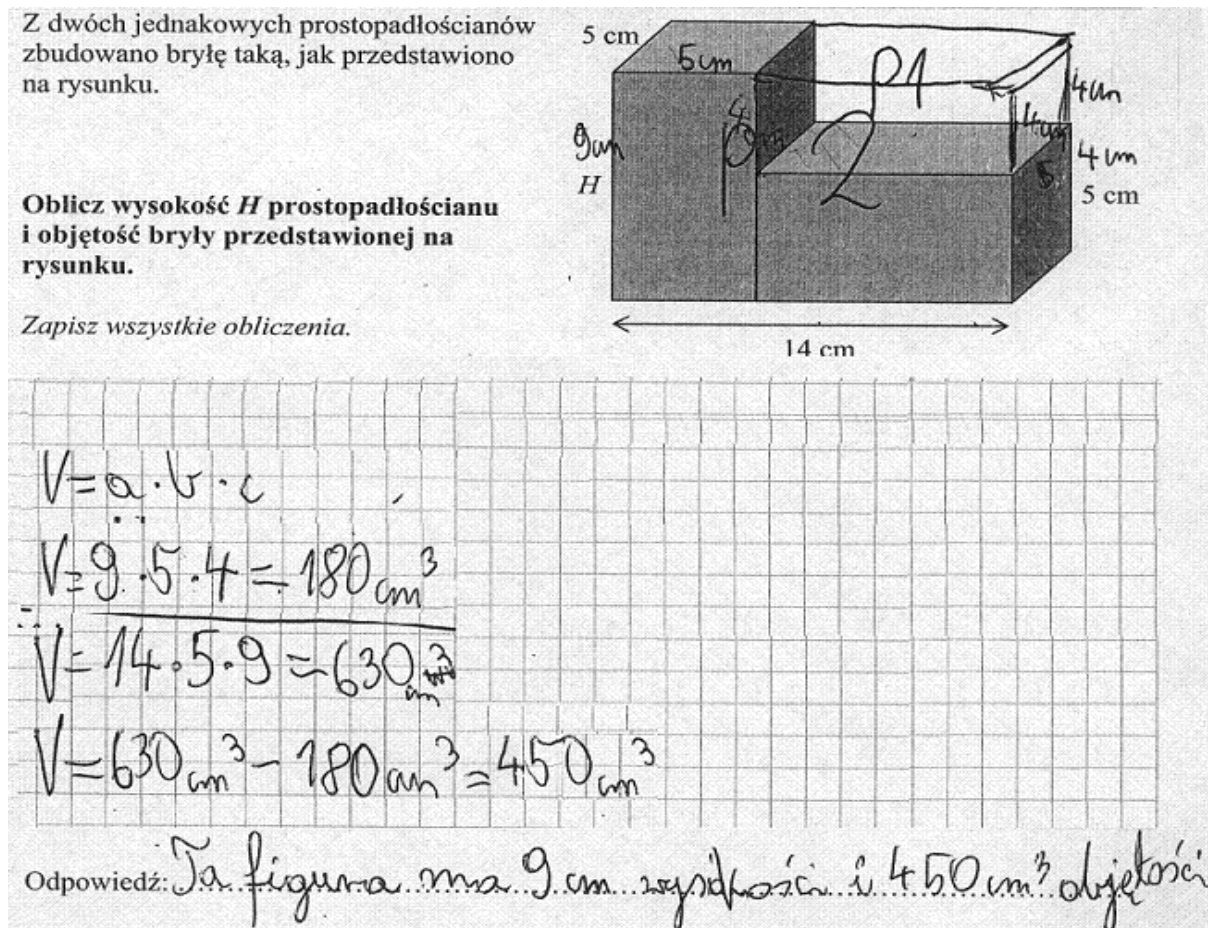 Z dwóch jednakowych prostopadłościanów
zbudowano bryłę taką, jak przedstawiono
na rysunku.
Oblicz wysokość H prostopadłościanu
i objętość bryły przedstawionej na
rysunku.
Zapisz wszystkie obliczenia.
5 cm
5cm
9cm
H
P1
2
4cm
4cm
4cm
5
5 cm
14 cm
V=a·b·c
V=9·5·4=180cm³
V=14·5·9=630cm³
V=630cm³-180cm³=450cm³
Odpowiedź: Ta figura ma 9 cm wysokości i 450cm³ objętości